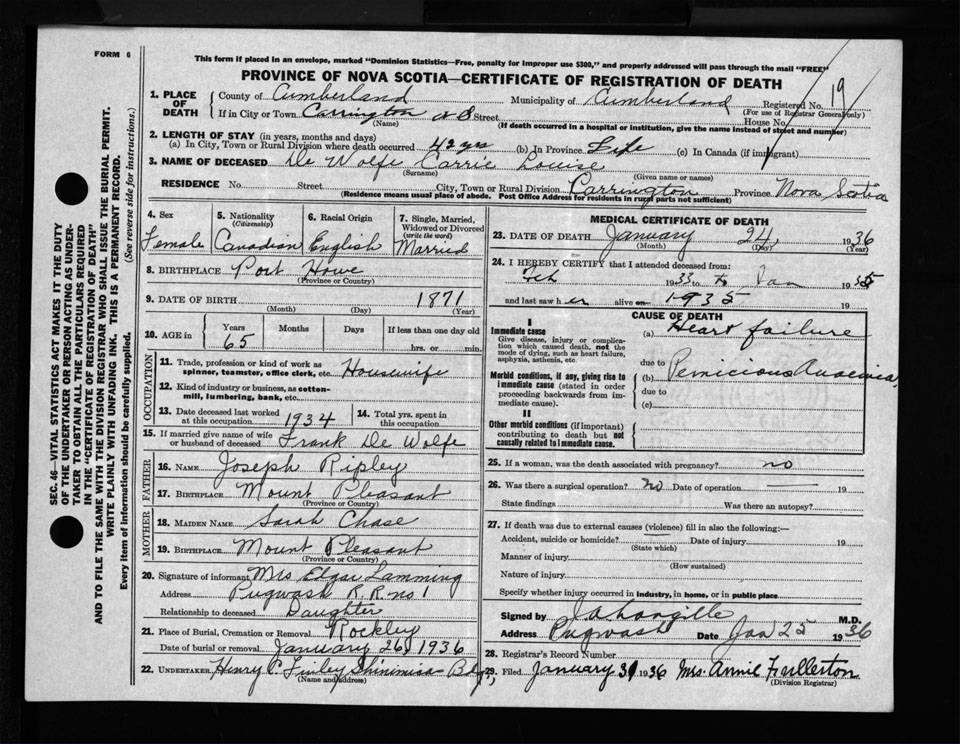 FORM 6
This form if placed in an envelope, marked "Dominion Statistics—Free, penalty for improper use $300," and properly addressed will pass through the mail "FREE"
PROVINCE OF NOVA SCOTIA—CERTIFICATE OF REGISTRATION OF DEATH
1. PLACE OF DEATH
County of Cumberland Municipality of Cumberland Registered No. 19
(For use of Registrar General only)
If in City or Town Carrington N S Street House No.
(Name) (If death occurred in a hospital or institution, give the name instead of street and number)
2. LENGTH OF STAY (in years, months and days)
(a) In City, Town or Rural Division where death occurred 42 yrs (b) In Province Life (c) In Canada (if immigrant)
3. NAME OF DECEASED De Wolfe Carrie Louise
(Surname) (Given name or names)
RESIDENCE No. Street City, Town or Rural Division Carrington Province Nova Scotia
(Residence means usual place of abode. Post Office Address for residents in rural parts not sufficient)
4. Sex
Female
5. Nationality
(Citizenship)
Canadian
6. Racial Origin
English
7. Single, Married, Widowed or Divorced
(write the word)
Married
8. BIRTHPLACE Port Howe
(Province or Country)
9. DATE OF BIRTH 1871
(Month) (Day) (Year)
10. AGE in
Years Months Days If less than one day old
65 hrs. or min.
OCCUPATION
11. Trade, profession or kind of work as spinner, teamster, office clerk, etc. Housewife
12. Kind of industry or business, as cotton-mill, lumbering, bank, etc.
13. Date deceased last worked at this occupation 1934
14. Total yrs. spent in this occupation
15. If married give name of wife or husband of deceased Frank De Wolfe
FATHER
16. NAME Joseph Ripley
17. BIRTHPLACE Mount Pleasant
(Province or Country)
MOTHER
18. MAIDEN NAME Sarah Chase
19. BIRTHPLACE Mount Pleasant
(Province or Country)
20. Signature of informant Mrs Edgar Lamming
Address Pugwash R.R. no 1
Relationship to deceased Daughter
21. Place of Burial, Cremation or Removal Rockley
Date of burial or removal January 26 1936
22. UNDERTAKER Henry C. Finley Shinimicas
(Name and address)
MEDICAL CERTIFICATE OF DEATH
23. DATE OF DEATH January 24, 1936
(Month) (Day) (Year)
24. I HEREBY CERTIFY that I attended deceased from:
Feb 1933 to Jan 1935
and last saw her alive on 1935 19
CAUSE OF DEATH
I
Immediate cause
Give disease, injury or complication which caused death, not the mode of dying, such as heart failure, asphyxia, asthenia, etc.
(a) Heart failure
due to
Morbid conditions, if any, giving rise to immediate cause (stated in order proceeding backwards from immediate cause).
(b) Pernicious Anaemia
due to
(c)
II
Other morbid conditions (if important) contributing to death but not causally related to immediate cause.
25. If a woman, was the death associated with pregnancy? no
26. Was there a surgical operation? no Date of operation 19
State findings Was there an autopsy?
27. If death was due to external causes (violence) fill in also the following:—
Accident, suicide or homicide? Date of injury 19
(State which)
Manner of injury
(How sustained)
Nature of injury
Specify whether injury occurred in industry, in home, or in public place
Signed by M.D.
Address Pugwash Date Jan 25 1936
28. Registrar's Record Number
29. Filed January 31 1936 Mrs. Annie Fullerton
(Division Registrar)
SEC. 46—VITAL STATISTICS ACT MAKES IT THE DUTY
OF THE UNDERTAKER OR PERSON ACTING AS UNDER-
TAKER TO OBTAIN ALL THE PARTICULARS REQUIRED
IN THE "CERTIFICATE OF REGISTRATION OF DEATH"
AND TO FILE THE SAME WITH THE DIVISION REGISTRAR WHO SHALL ISSUE THE BURIAL PERMIT.
WRITE PLAINLY WITH UNFADING INK. THIS IS A PERMANENT RECORD.
Every item of information should be carefully supplied. (See reverse side for instructions.)